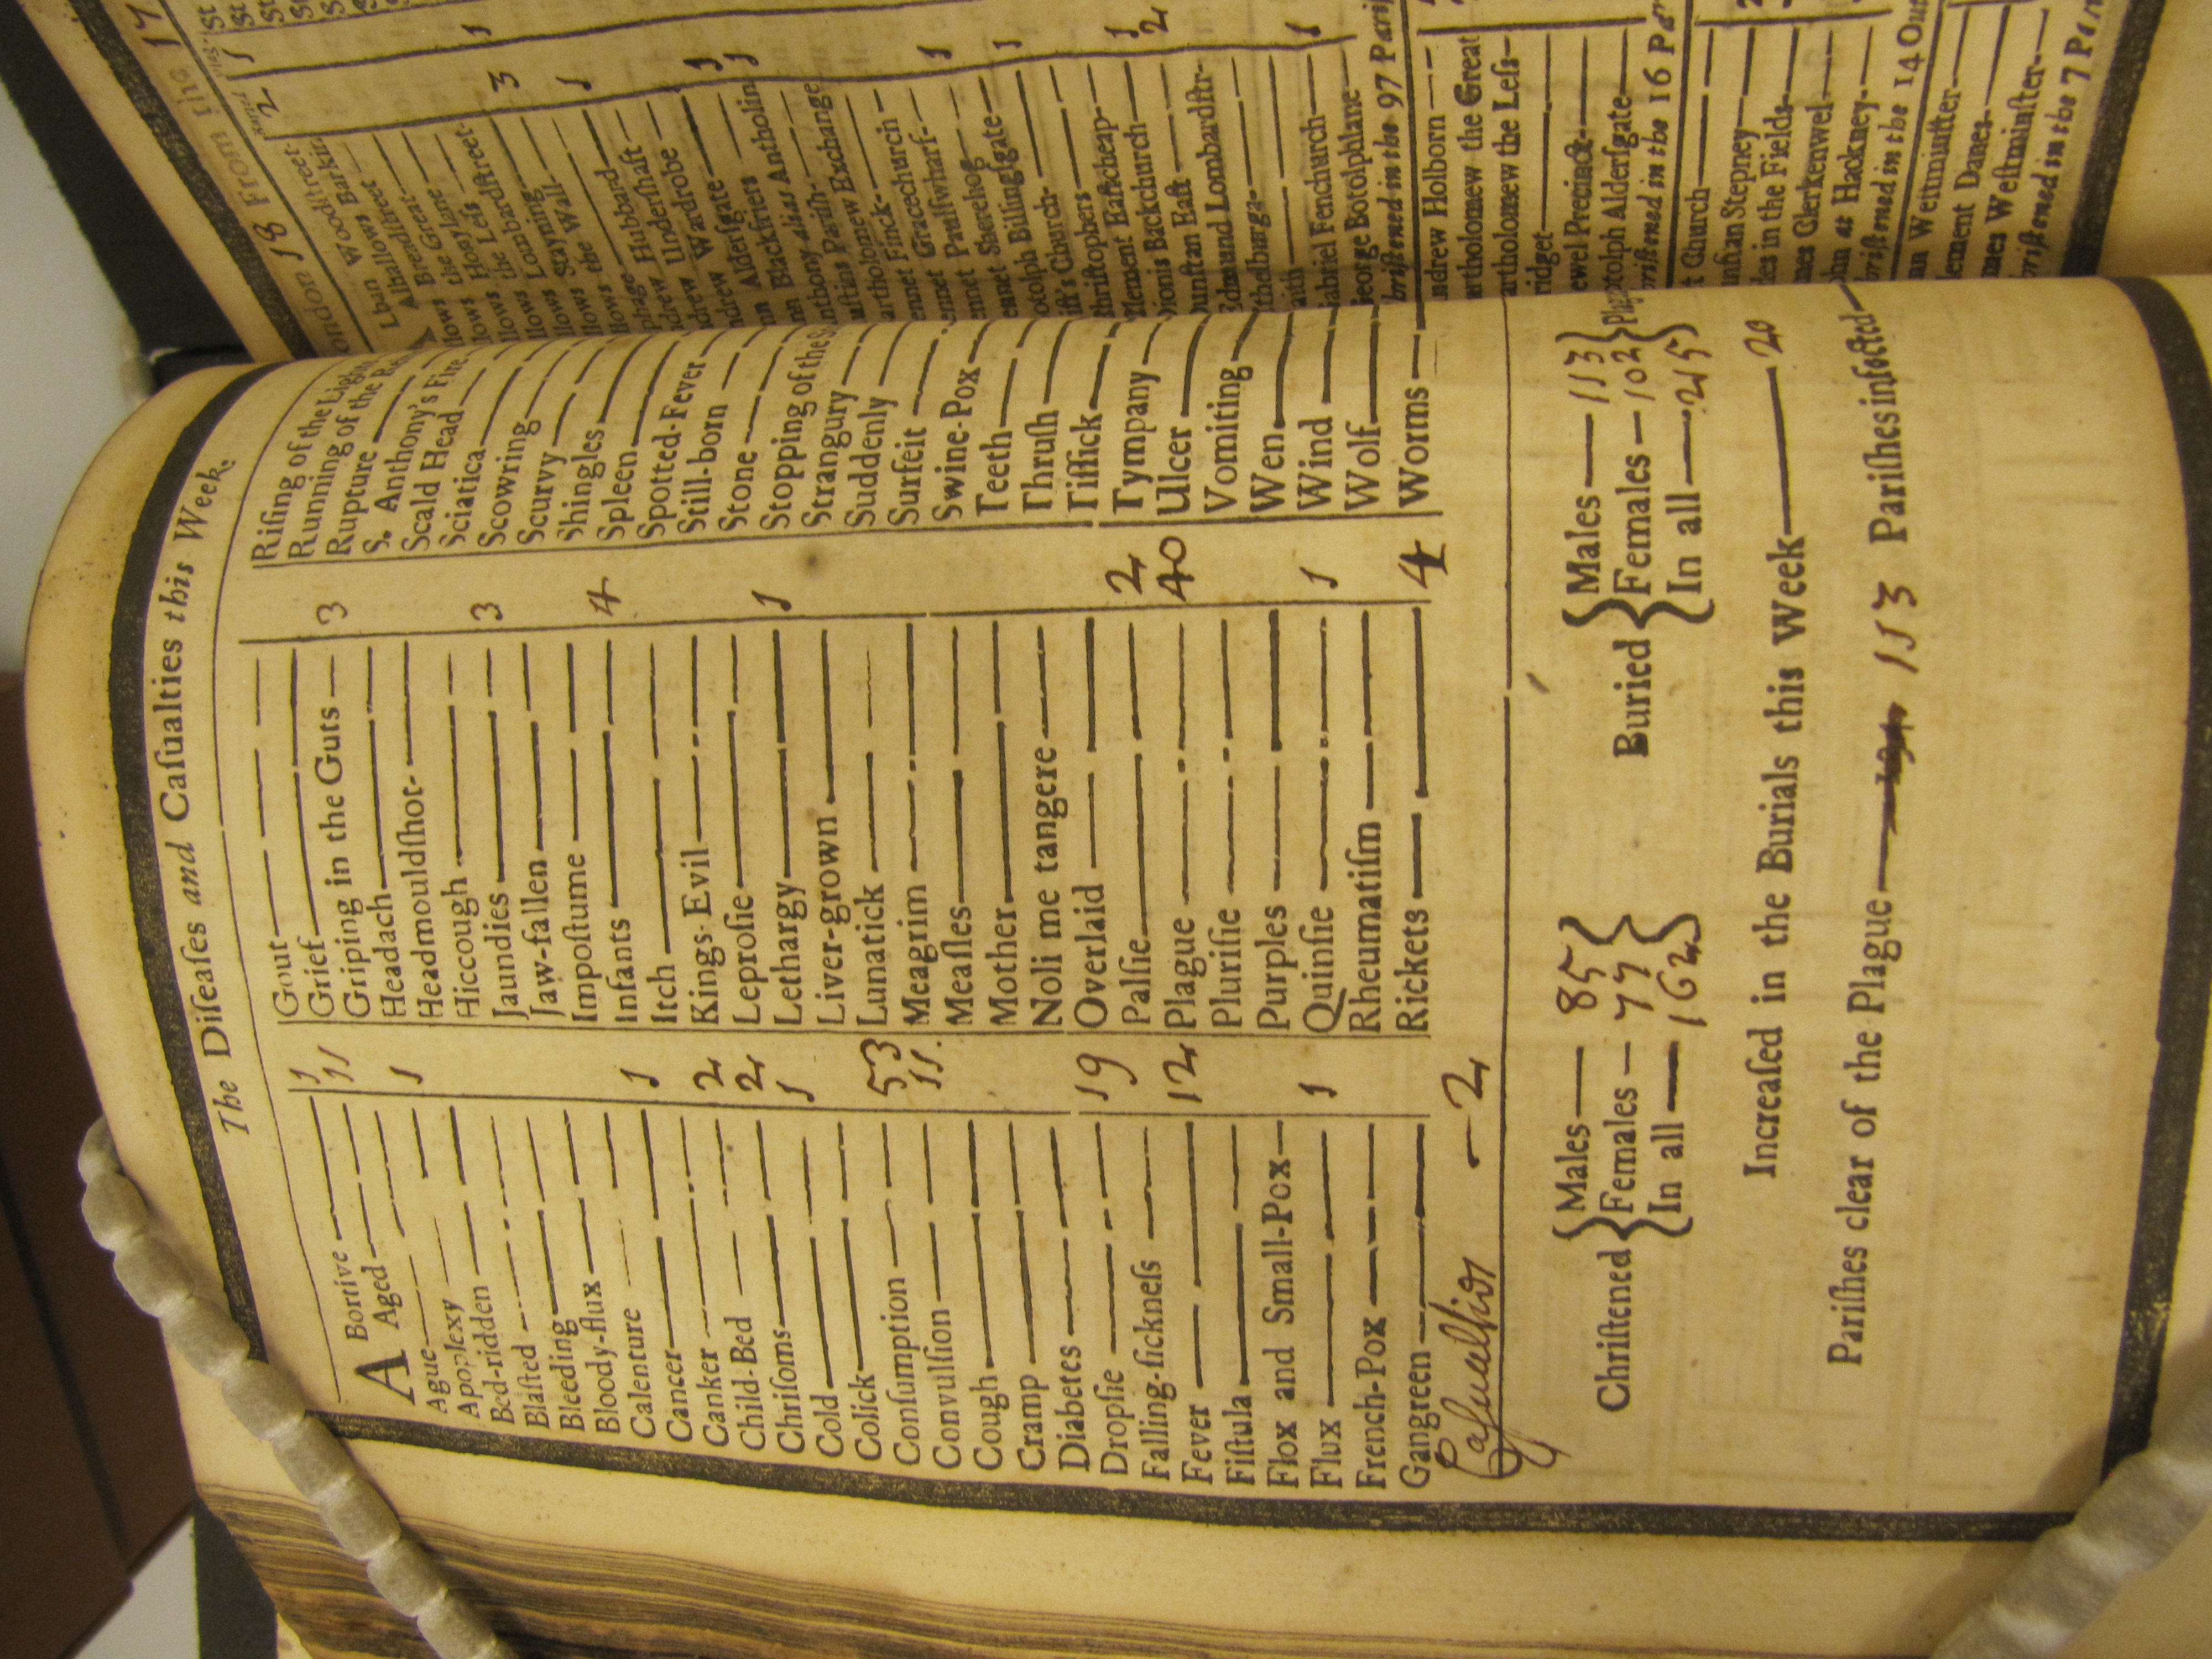 The Diſeaſes and Caſualties this Week.
A Bortive 1
Aged 11
Ague
Apoplexy 1
Bed-ridden
Blaſted
Bleeding
Bloody-flux
Calenture
Cancer 1
Canker
Child-Bed 2
Chriſoms 2
Cold 1
Colick
Conſumption 53
Convulſion 11.
Cough
Cramp
Diabetes
Dropſie 19
Falling-ſickneſs
Fever 12
Fiſtula
Flox and Small-Pox
Flux 1
French-Pox
Gangreen
Caſualties 2
Gout
Grief
Griping in the Guts 3
Headach
Headmouldſhot
Hiccough
Jaundies 3
Jaw-fallen
Impoſtume
Infants 4
Itch
Kings-Evil
Leproſie
Lethargy 1
Liver-grown
Lunatick
Meagrim
Meaſles
Mother
Noli me tangere
Overlaid
Palſie 2
Plague 40
Pluriſie
Purples
Quinſie 1
Rheumatiſm
Rickets 4
Riſing of the Light
Running of the
Rupture
S. Anthony's Fire
Scald Head
Sciatica
Scowring
Scurvy
Shingles
Spleen
Spotted-Fever
Still-born
Stone
Stopping of the
Strangury
Suddenly
Surfeit
Swine-Pox
Teeth
Thruſh
Tiſſick
Tympany
Ulcer
Vomiting
Wen
Wind
Wolf
Worms
Chriſtened
Males 85
Females 77
In all 162
Buried
Males 113
Females 102
In all 215
Increaſed in the Burials this Week 20
Pariſhes clear of the Plague 113 Pariſhes infected
18 From the 17
Woodſtreet 2 1
Alhallows Barkin
Breadſtreet
Great
the Great
Honylane 3 1
the Leſs
Lombardſtreet
Lothing 1
Stayning
the Wall
Hubbard
Underſhaft
Wardrobe 1
Alderſgate 1
Blackfriers
alias Antholin
Pariſh
Exchange
Finck
Gracechurch 1
Paulſwharf
Sherehog 1
Billingſgate
Church
Eaſtcheap 1
Backchurch 2
unſtan Eaſt
Edmund Lombardſtr-
thelburga
aith
abriel Fenchurch 1
George Botolphlane
briſtened in the 97 Pariſ
ndrew Holborn
artholomew the Great
artholomew the Leſs
ridget
ewel Precinct
otolph Alderſgate
briſtened in the 16 Par
Church
unſtan Stepney
les in the Fields
mes Clerkenwel
ohn at Hackney
briſtened in the 14 Out
Weſtminſter
lement Danes
mes Weſtminſter
briſtened in the 7 Par